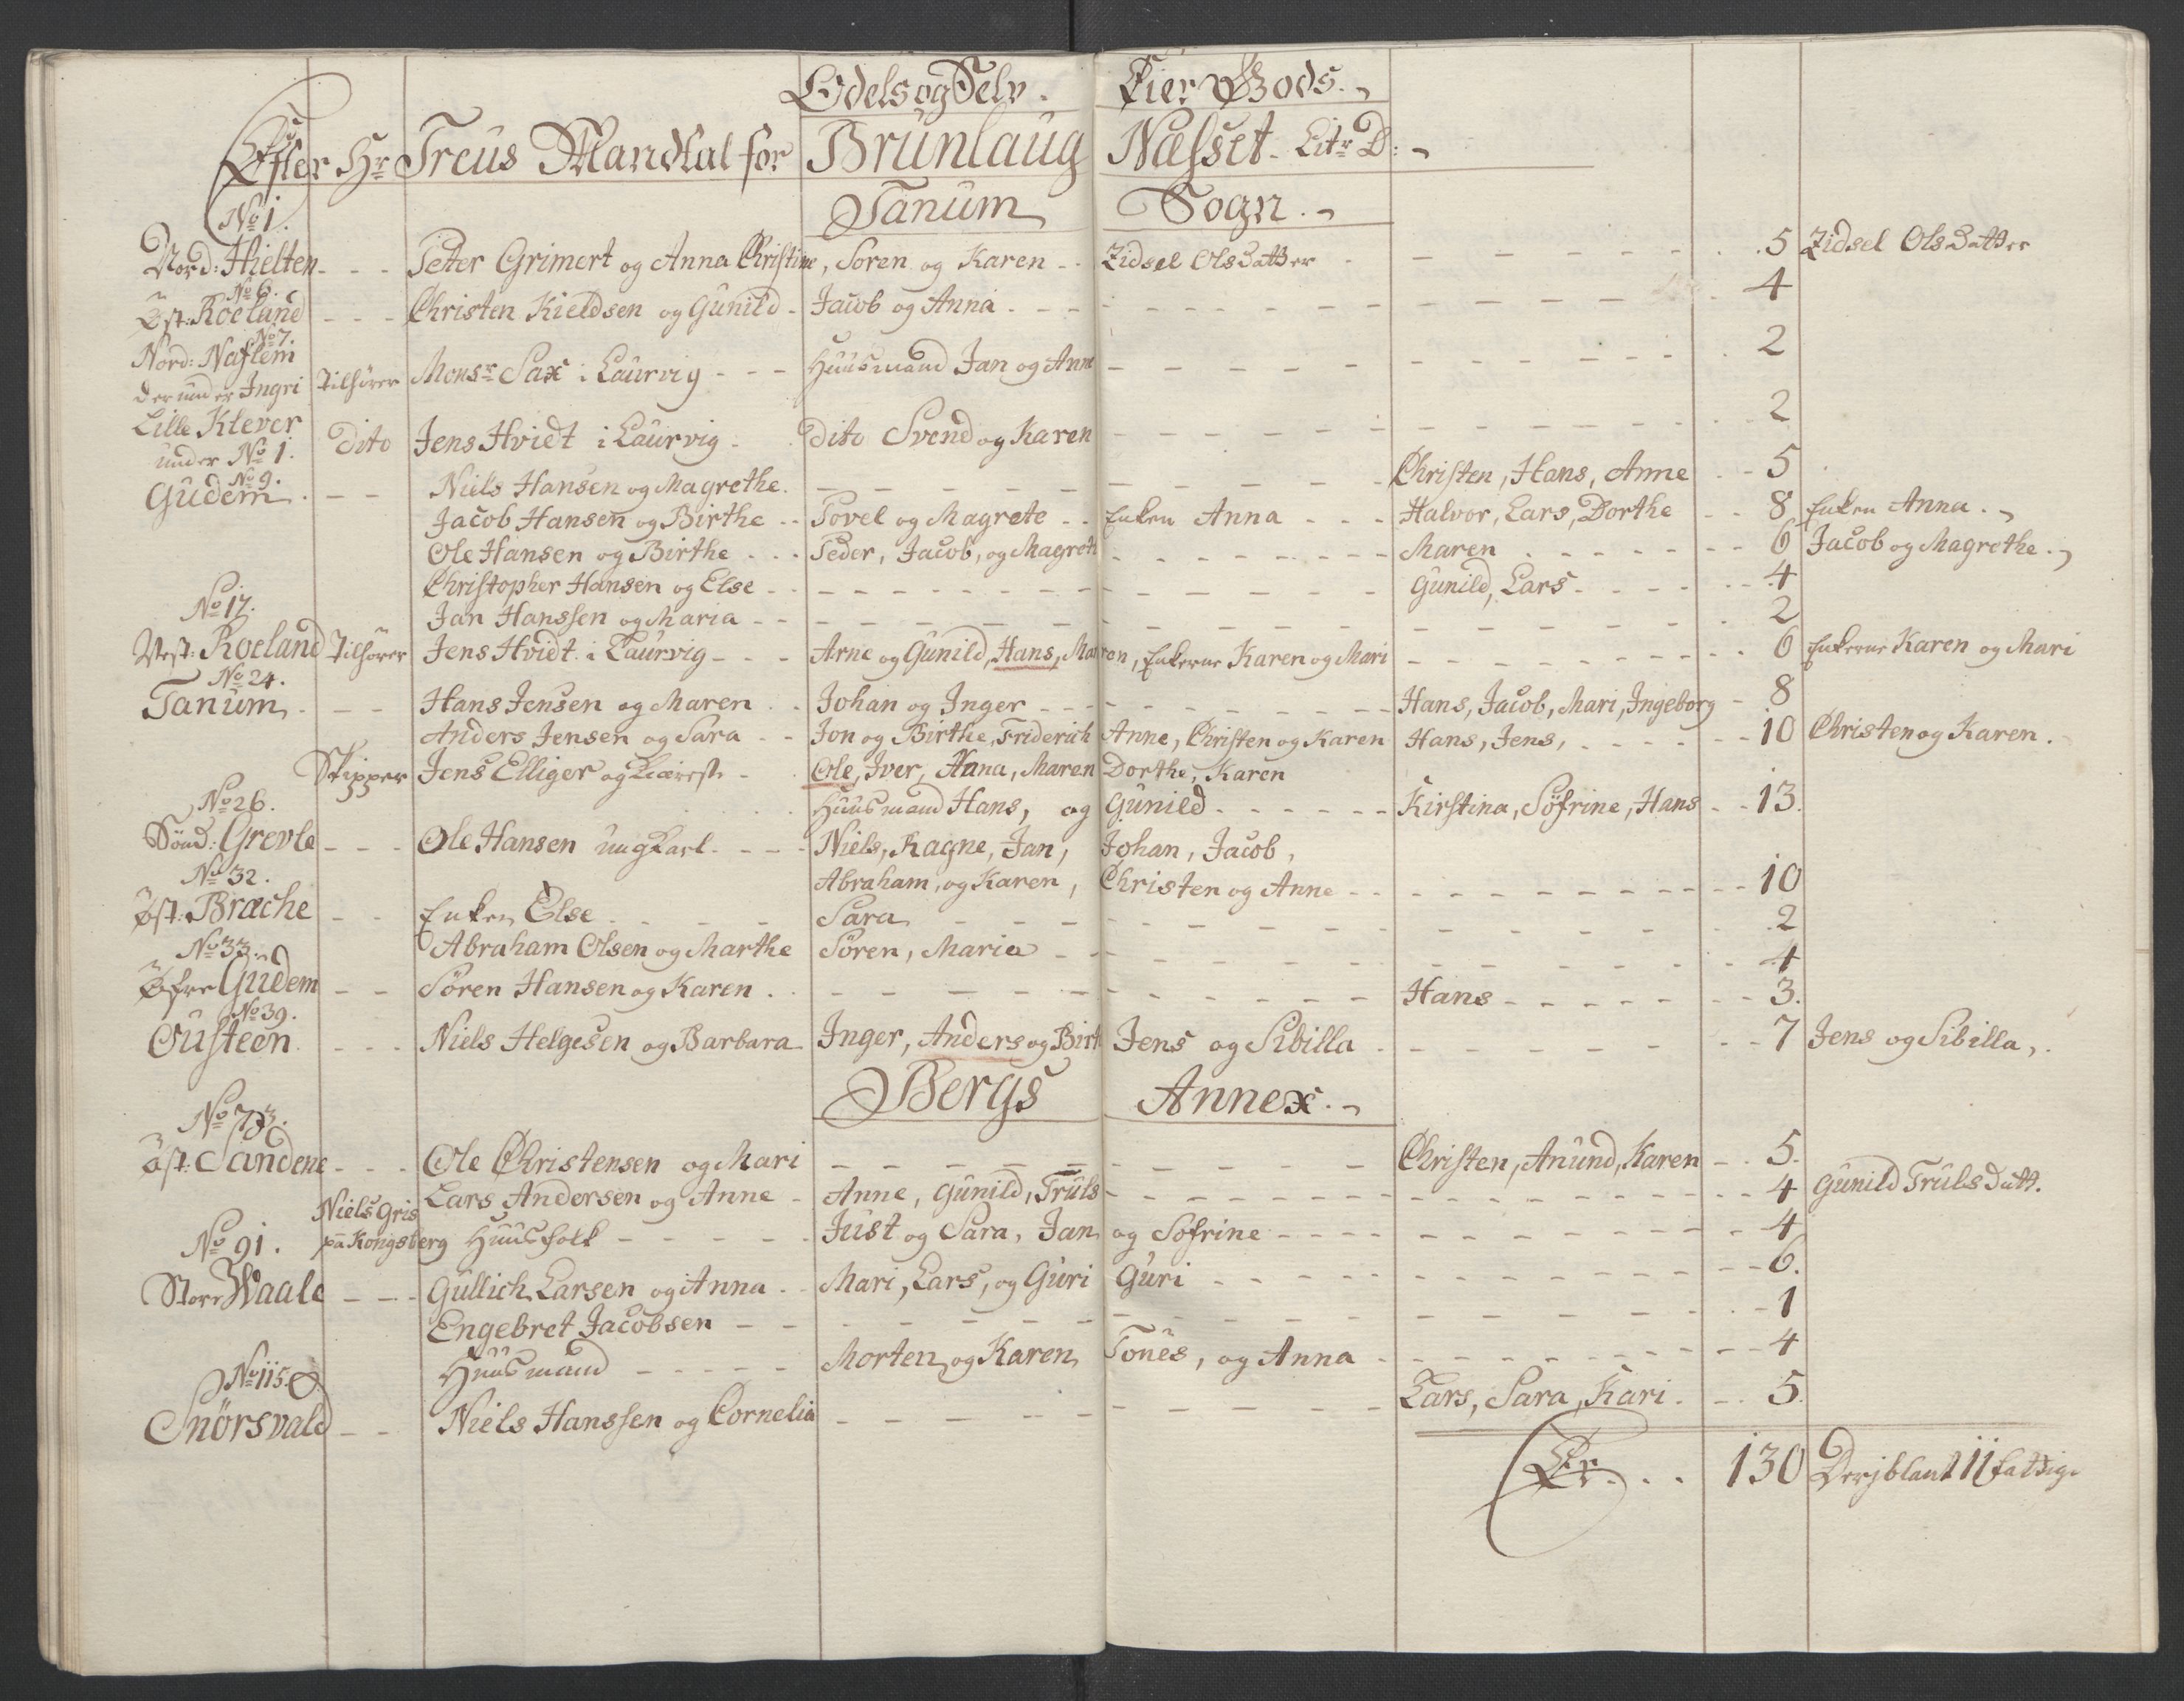 Odels og Selv Eier Gods.
Efter Hr Treus Mandtal for Brunlaug Næsset. Litr D:
Tanum Sogn.
No 1.
Nord: Hielten - - - Peter Grimert og Anna Christine, Soren og Karen - - Zidsel Olsdatter - - - 5 Zidsel Olsdatter
No 6.
Øst: Roeland - - - Christen Kieldsen og Gunild - Jacob og Anna - - - 4
No 7.
Nord: Naflem
derunder Ingri Tilhörer Monsr Sax i Laurvig - - - Huusmand Jan og Anne - - - 2
Lille Klever
under No 1. Dito Jens Hvidt i Laurvig - Dito Svend og Karen - - - 2
No 9.
Gudem - - - Niels Hansen og Magrethe. - - - Christen, Hans, Anne - - 5
Jacob Hansen og Birthe - - Povel og Magrete - - Enken Anna - - - Halvor, Lars, Dorthe - - 8 Enken Anna.
Ole Hansen og Birthe - - - Peder, Jacob, og Magrete - - - Maren - - - 6 Jacob og Magrethe.
Christopher Hansen og Else - - - Gunild, Lars - - - 4
Jan Hanssen og Maria - - - 2
No 17.
Vest: Roeland Tilhörer Jens Hvidt i Laurvig - - - Arne og Gunild, Hans, Maren, Enkerne Karen og Mari - - - 6 Enkerne Karen og Mari
No 24.
Tanum - - - Hans Jensen og Maren - - Johan og Inger - - - Hans, Jacob, Mari, Ingeborg - 8
Anders Jensen og Sara - - Jon og Birthe, Friderich Anne, Christen og Karen Hans, Jens, - - - 10 Christen og Karen.
Skipper Jens Elliger og - Ole, Iver, Anna, Maren Dorthe, Karen
Huusmand Hans, og Gunild - - - Kirstina, Söfrine, Hans - - 13.
No 26.
Sönd: Grevle - - - Ole Hansen ung Karl - - - Niels, Ragne, Jan, Johan, Jacob,
Abraham, og Karen, Christen og Anne - - - 10
No 32.
Øst: Bræche - - Enken Else - - - Sara - - - 2
Abraham Olsen og Marthe Sören, Maria - - - 4
No 33.
Øfre Gudem - - Sören Hansen og Karen - - - Hans - - - 3.
No 39.
Ousteen - - - Niels Helgesen og Barbara Inger, Anders og Birt Jens og Sibilla - - - 7 Jens og Sibilla.
Bergs Annex.
No 73.
Øst: Sandene - - - Ole Christensen og Mari - - - Christen, Anund, Karen - - 5.
Lars Andersen og Anne - Anne, Gunild, Truls - - - 4 Gunild Truls datt.
Niels Gris
på Kongsberg Huusfolk - - - Just og Sara, Jan og Sofrine - - - 4
No 91.
Store Waale - - - Gullich Larsen og Anna - - Mari, Lars, og Guri Guri - - - 6.
Engebret Jacobsen - - - 1
Huusmand - - - Morten og Karen Tönes, og Anna - - - 4
No 115.
Snörsvald - - Niels Hanssen og Cornelia - - - Lars, Sara, Kari. - - 5.
Er. . . 130 Deriblant 11 fattige